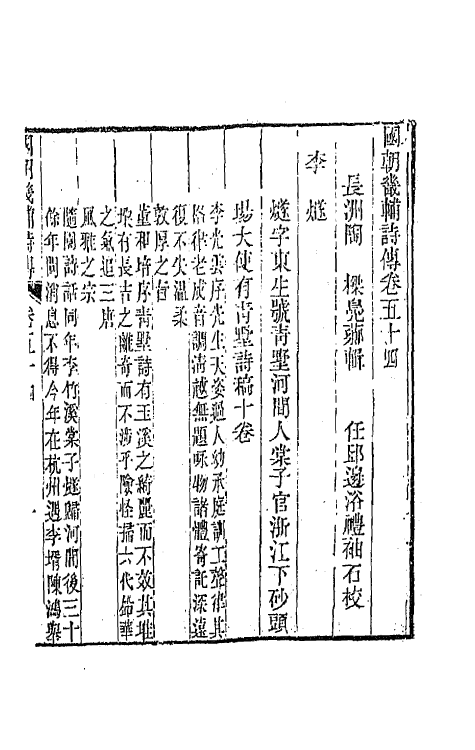 國朝畿輔詩傳卷五十四
長洲陶 樑鳧薌輯 任邱邊浴禮袖石校
李燧
燧字東生號靑墅河間人棠子官浙江下砂頭
場大使有靑墅詩稿十卷
李光雲序先生天姿過人幼承庭訓工聲律其
格律老成音調淸越無題咏物諸體寄託深遠
復不失溫柔
敦厚之旨
董和培序靑墅詩有玉溪之綺麗而不效其堆
垛有長吉之離奇而不涉乎險怪掃六代鉛華
之氣追三唐
風雅之宗
隨園詩話同年李竹溪棠子燧歸河間後三十
餘年間消息不得今年在杭州遇李壻陳鴻舉
國朝畿輔詩傳 卷五十四 一